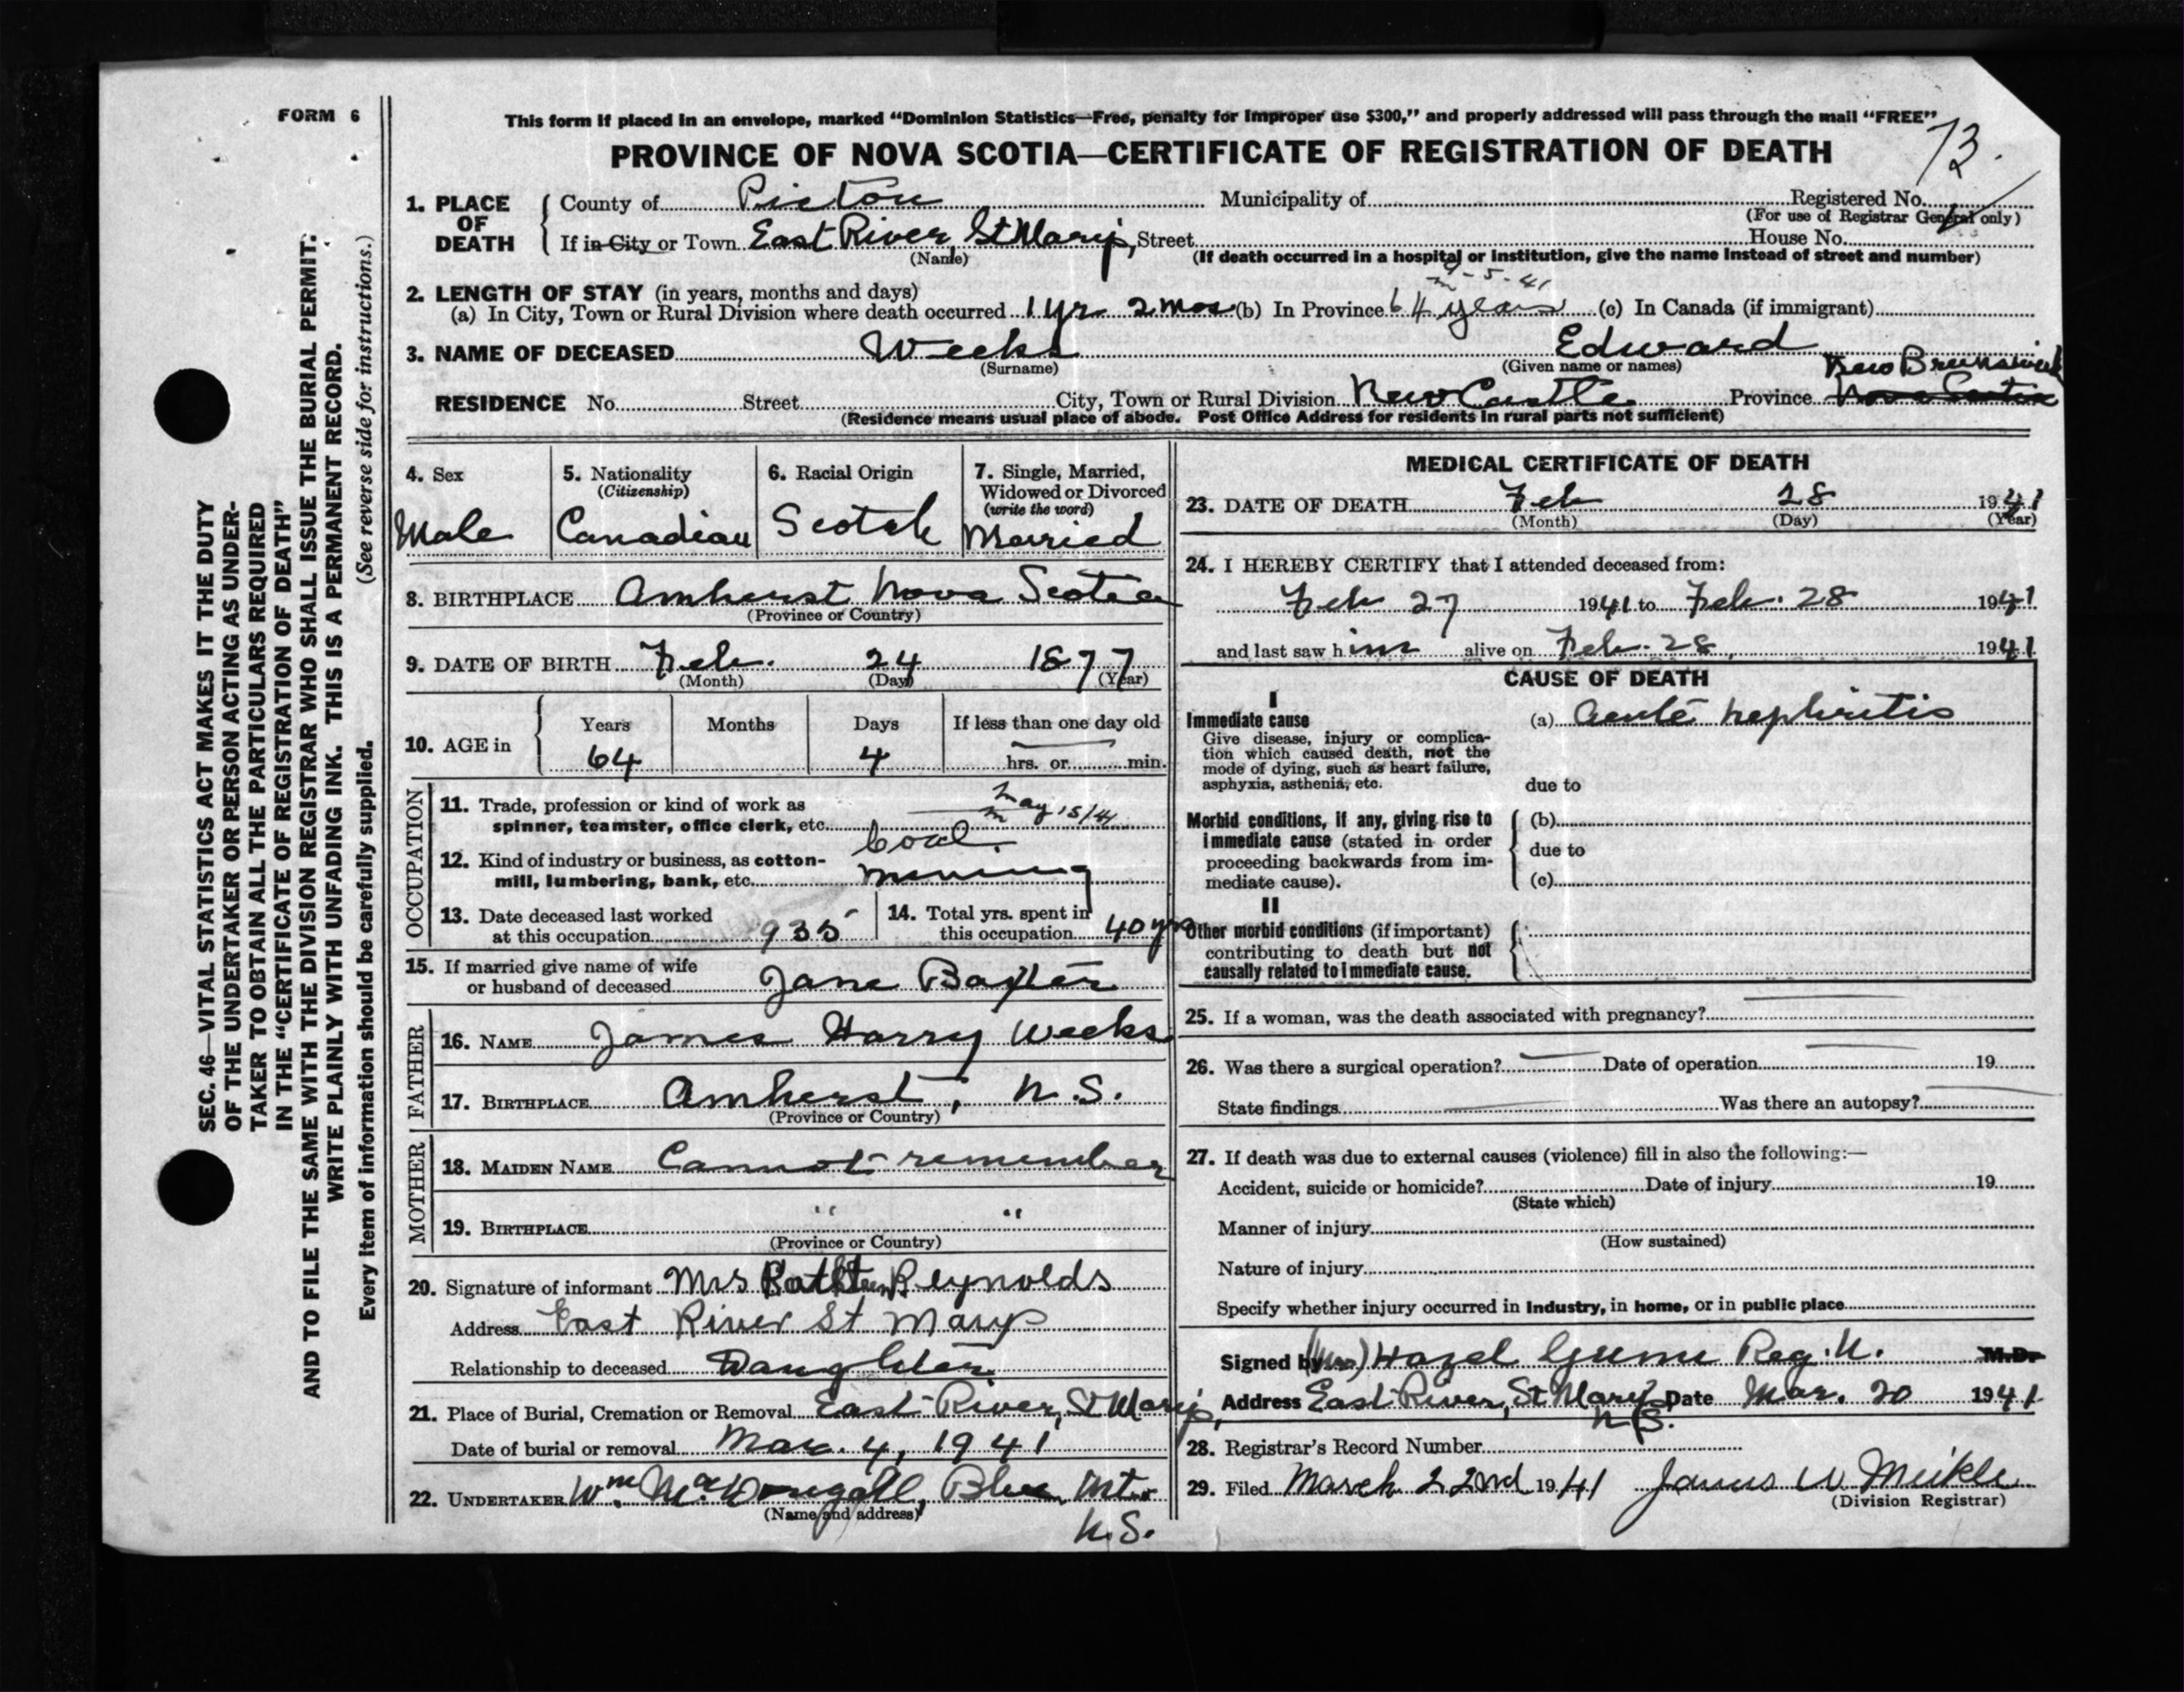 FORM 6
This form if placed in an envelope, marked “Dominion Statistics—Free, penalty for improper use $300,” and properly addressed will pass through the mail “FREE”
73.
PROVINCE OF NOVA SCOTIA—CERTIFICATE OF REGISTRATION OF DEATH
1. PLACE OF DEATH
County of Pictou Municipality of Registered No.
(For use of Registrar General only)
If in City or Town East River, St Marys, Street House No.
(Name) (If death occurred in a hospital or institution, give the name instead of street and number)
2. LENGTH OF STAY (in years, months and days)
(a) In City, Town or Rural Division where death occurred 1 yr 2 mos (b) In Province 64 years (c) In Canada (if immigrant)
3. NAME OF DECEASED Weeks Edward
(Surname) (Given name or names)
New Brunswick
RESIDENCE No. Street City, Town or Rural Division New Castle Province Nova Scotia
(Residence means usual place of abode. Post Office Address for residents in rural parts not sufficient)
4. Sex
Male
5. Nationality
(Citizenship)
Canadian
6. Racial Origin
Scotch
7. Single, Married,
Widowed or Divorced
(write the word)
Married
8. BIRTHPLACE Amherst Nova Scotia
(Province or Country)
9. DATE OF BIRTH Feb. 24 1877
(Month) (Day) (Year)
10. AGE in
Years Months Days If less than one day old
64 4 hrs. or min.
OCCUPATION
11. Trade, profession or kind of work as
spinner, teamster, office clerk, etc.
May 15/41
12. Kind of industry or business, as cotton-
mill, lumbering, bank, etc.
Coal.
mining
13. Date deceased last worked
at this occupation 935
14. Total yrs. spent in
this occupation 40 yrs
15. If married give name of wife
or husband of deceased Jane Baxter
FATHER
16. NAME James Harry Weeks
17. BIRTHPLACE Amherst, N.S.
(Province or Country)
MOTHER
18. MAIDEN NAME Cannot remember
19. BIRTHPLACE " "
(Province or Country)
20. Signature of informant Mrs Kathleen Reynolds
Address East River St Marys
Relationship to deceased Daughter
21. Place of Burial, Cremation or Removal East River, St Marys,
Date of burial or removal Mar. 4, 1941
22. UNDERTAKER Wm. MacDougall, Blue Mt.
(Name and address)
N.S.
MEDICAL CERTIFICATE OF DEATH
23. DATE OF DEATH Feb 28 1941
(Month) (Day) (Year)
24. I HEREBY CERTIFY that I attended deceased from:
Feb 27 1941 to Feb. 28 1941
and last saw him alive on Feb. 28, 1941
CAUSE OF DEATH
I
Immediate cause
Give disease, injury or complica-
tion which caused death, not the
mode of dying, such as heart failure,
asphyxia, asthenia, etc.
(a) Acute nephritis
due to
Morbid conditions, if any, giving rise to
immediate cause (stated in order
proceeding backwards from im-
mediate cause).
(b)
due to
(c)
II
Other morbid conditions (if important)
contributing to death but not
causally related to immediate cause.
25. If a woman, was the death associated with pregnancy?
26. Was there a surgical operation? Date of operation 19
State findings Was there an autopsy?
27. If death was due to external causes (violence) fill in also the following:—
Accident, suicide or homicide? Date of injury 19
(State which)
Manner of injury
(How sustained)
Nature of injury
Specify whether injury occurred in industry, in home, or in public place
Signed by (Mrs) Hazel Gunn Reg. N. M.D.
Address East River, St Marys Date Mar. 20 1941
N.S.
28. Registrar's Record Number
29. Filed March 22nd 1941 James W Meikle
(Division Registrar)
SEC. 46—VITAL STATISTICS ACT MAKES IT THE DUTY
OF THE UNDERTAKER OR PERSON ACTING AS UNDER-
TAKER TO OBTAIN ALL THE PARTICULARS REQUIRED
IN THE “CERTIFICATE OF REGISTRATION OF DEATH”
AND TO FILE THE SAME WITH THE DIVISION REGISTRAR WHO SHALL ISSUE THE BURIAL PERMIT.
WRITE PLAINLY WITH UNFADING INK. THIS IS A PERMANENT RECORD.
Every item of information should be carefully supplied. (See reverse side for instructions.)